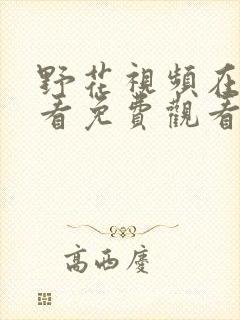 野花視頻在
看免費觀看
高西慶